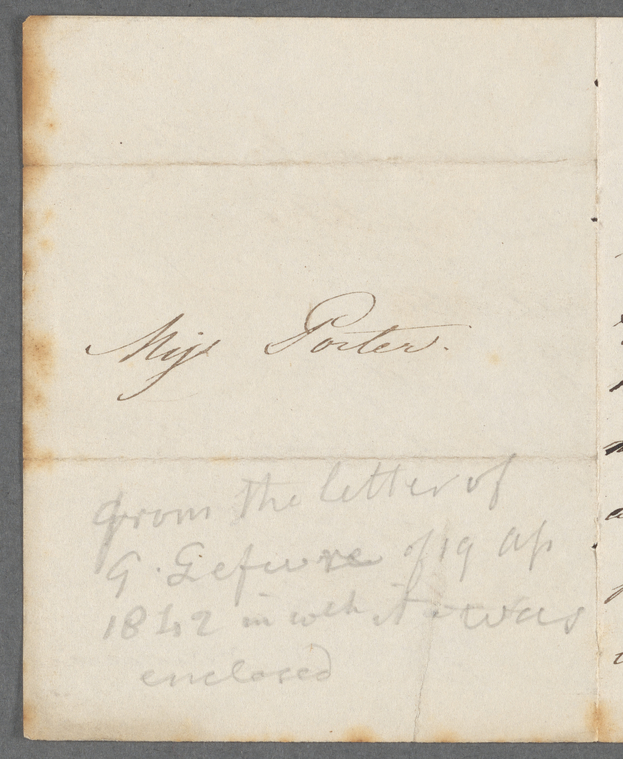 Miss Porter.
from the letter of
G. Lefevre of 19 Ap
1842 in wch it was
enclosed